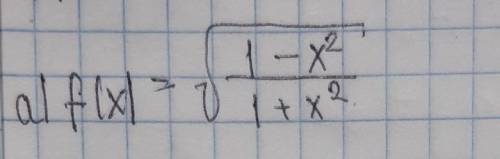 a) f(x) = √((1 - x²)/(1 + x²))